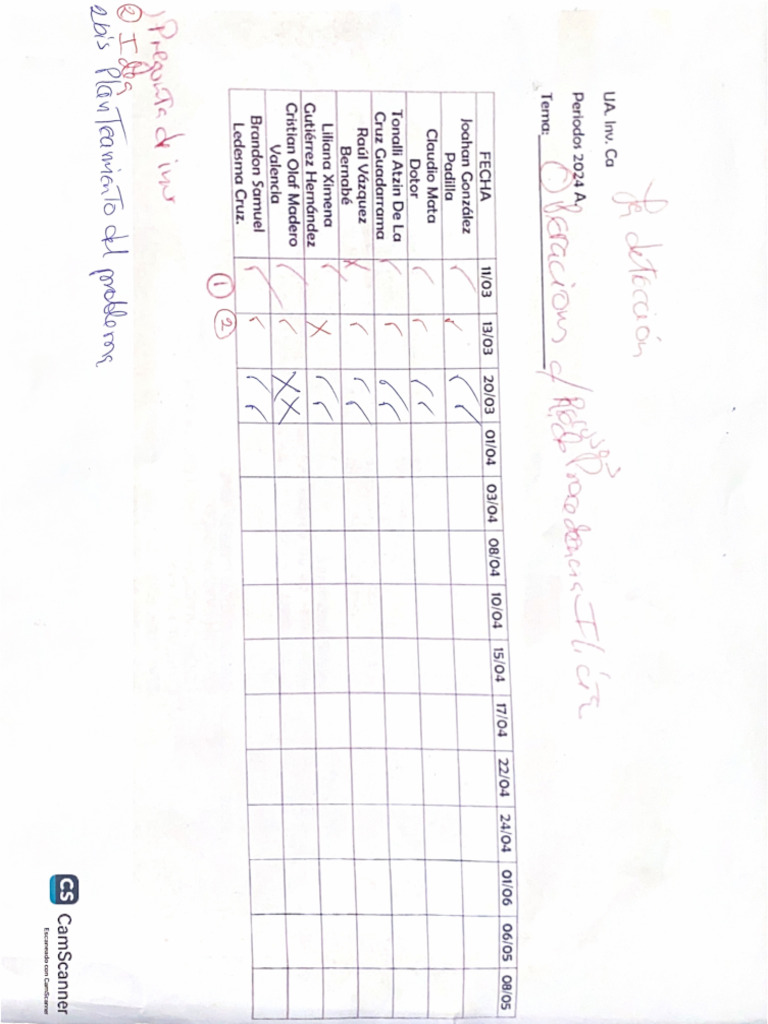 La detección
UA. Inv. Ca
Periodos 2024 A.
Tema: ① Operaciones c/ Recursos de Procedencia Ilícita
FECHA 11/03 13/03 20/03 01/04 03/04 08/04 10/04 15/04 17/04 22/04 24/04 01/06 06/05 08/05
Joahan González
Padilla
Claudio Mata
Dotor
Tonalli Atzin De La
Cruz Guadarrama
Raúl Vázquez
Bernabé
Liliana Ximena
Gutiérrez Hernández
Cristian Olaf Madero
Valencia
Brandon Samuel
Ledesma Cruz.
① ②
) Pregunta de inv
② Idea
2bis Planteamiento del problema
CS CamScanner
Escaneado con CamScanner